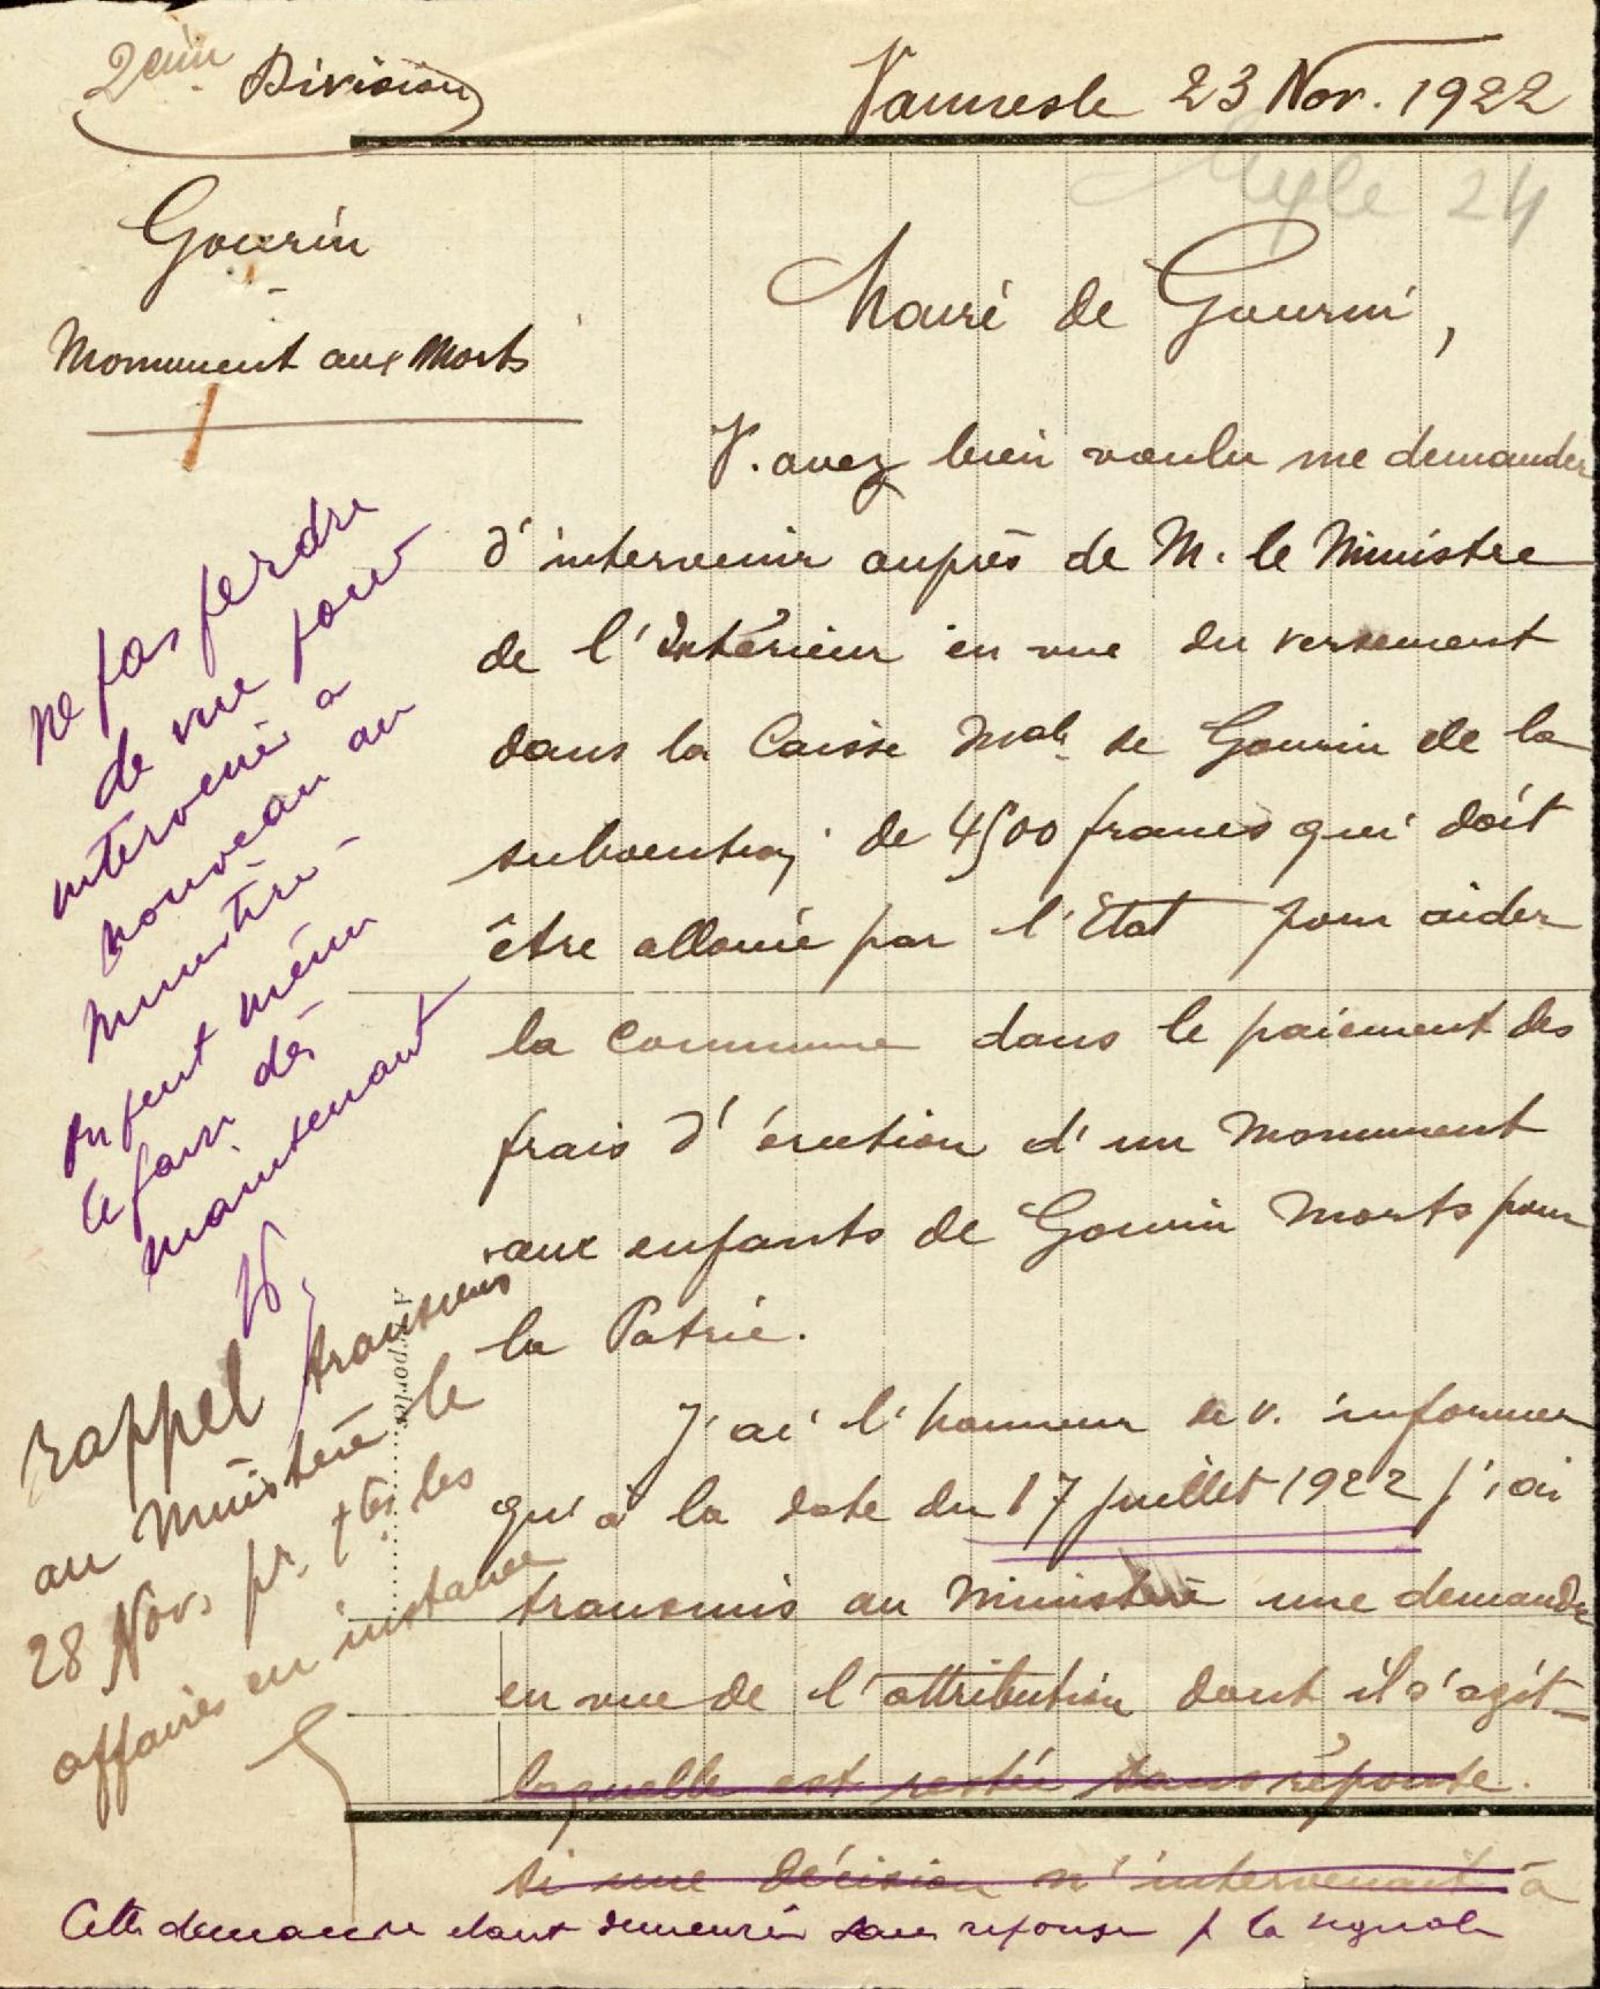 2ème Division
Vannes le 23 Nov. 1922
24
Gourin
Monument aux Morts
Maire de Gourin,
V. avez bien voulu me demander
d'intervenir auprès de M. le Ministre
de l'Intérieur en vue du versement
dans la Caisse Male de Gourin de la
subvention de 4500 francs qui doit
être allouée par l'Etat pour aider
la Commune dans le paiement des
frais d'érection d'un Monument
aux enfants de Gourin Morts pour
la Patrie.
J'ai l'honneur de v. informer
qu'à la date du 17 juillet 1922 j'ai
transmis au Ministère une demande
en vue de l'attribution dont il s'agit
laquelle est restée sans réponse.
si une décision n'intervenait à
Cette demande étant demeurée sans réponse je la signale
ne pas perdre
de vue pour
intervenir à
nouveau au
ministère
On peut même
le faire dès
maintenant
Rappel transmis
au Ministère le
28 Nov. pr. ttes les
affaires en instance